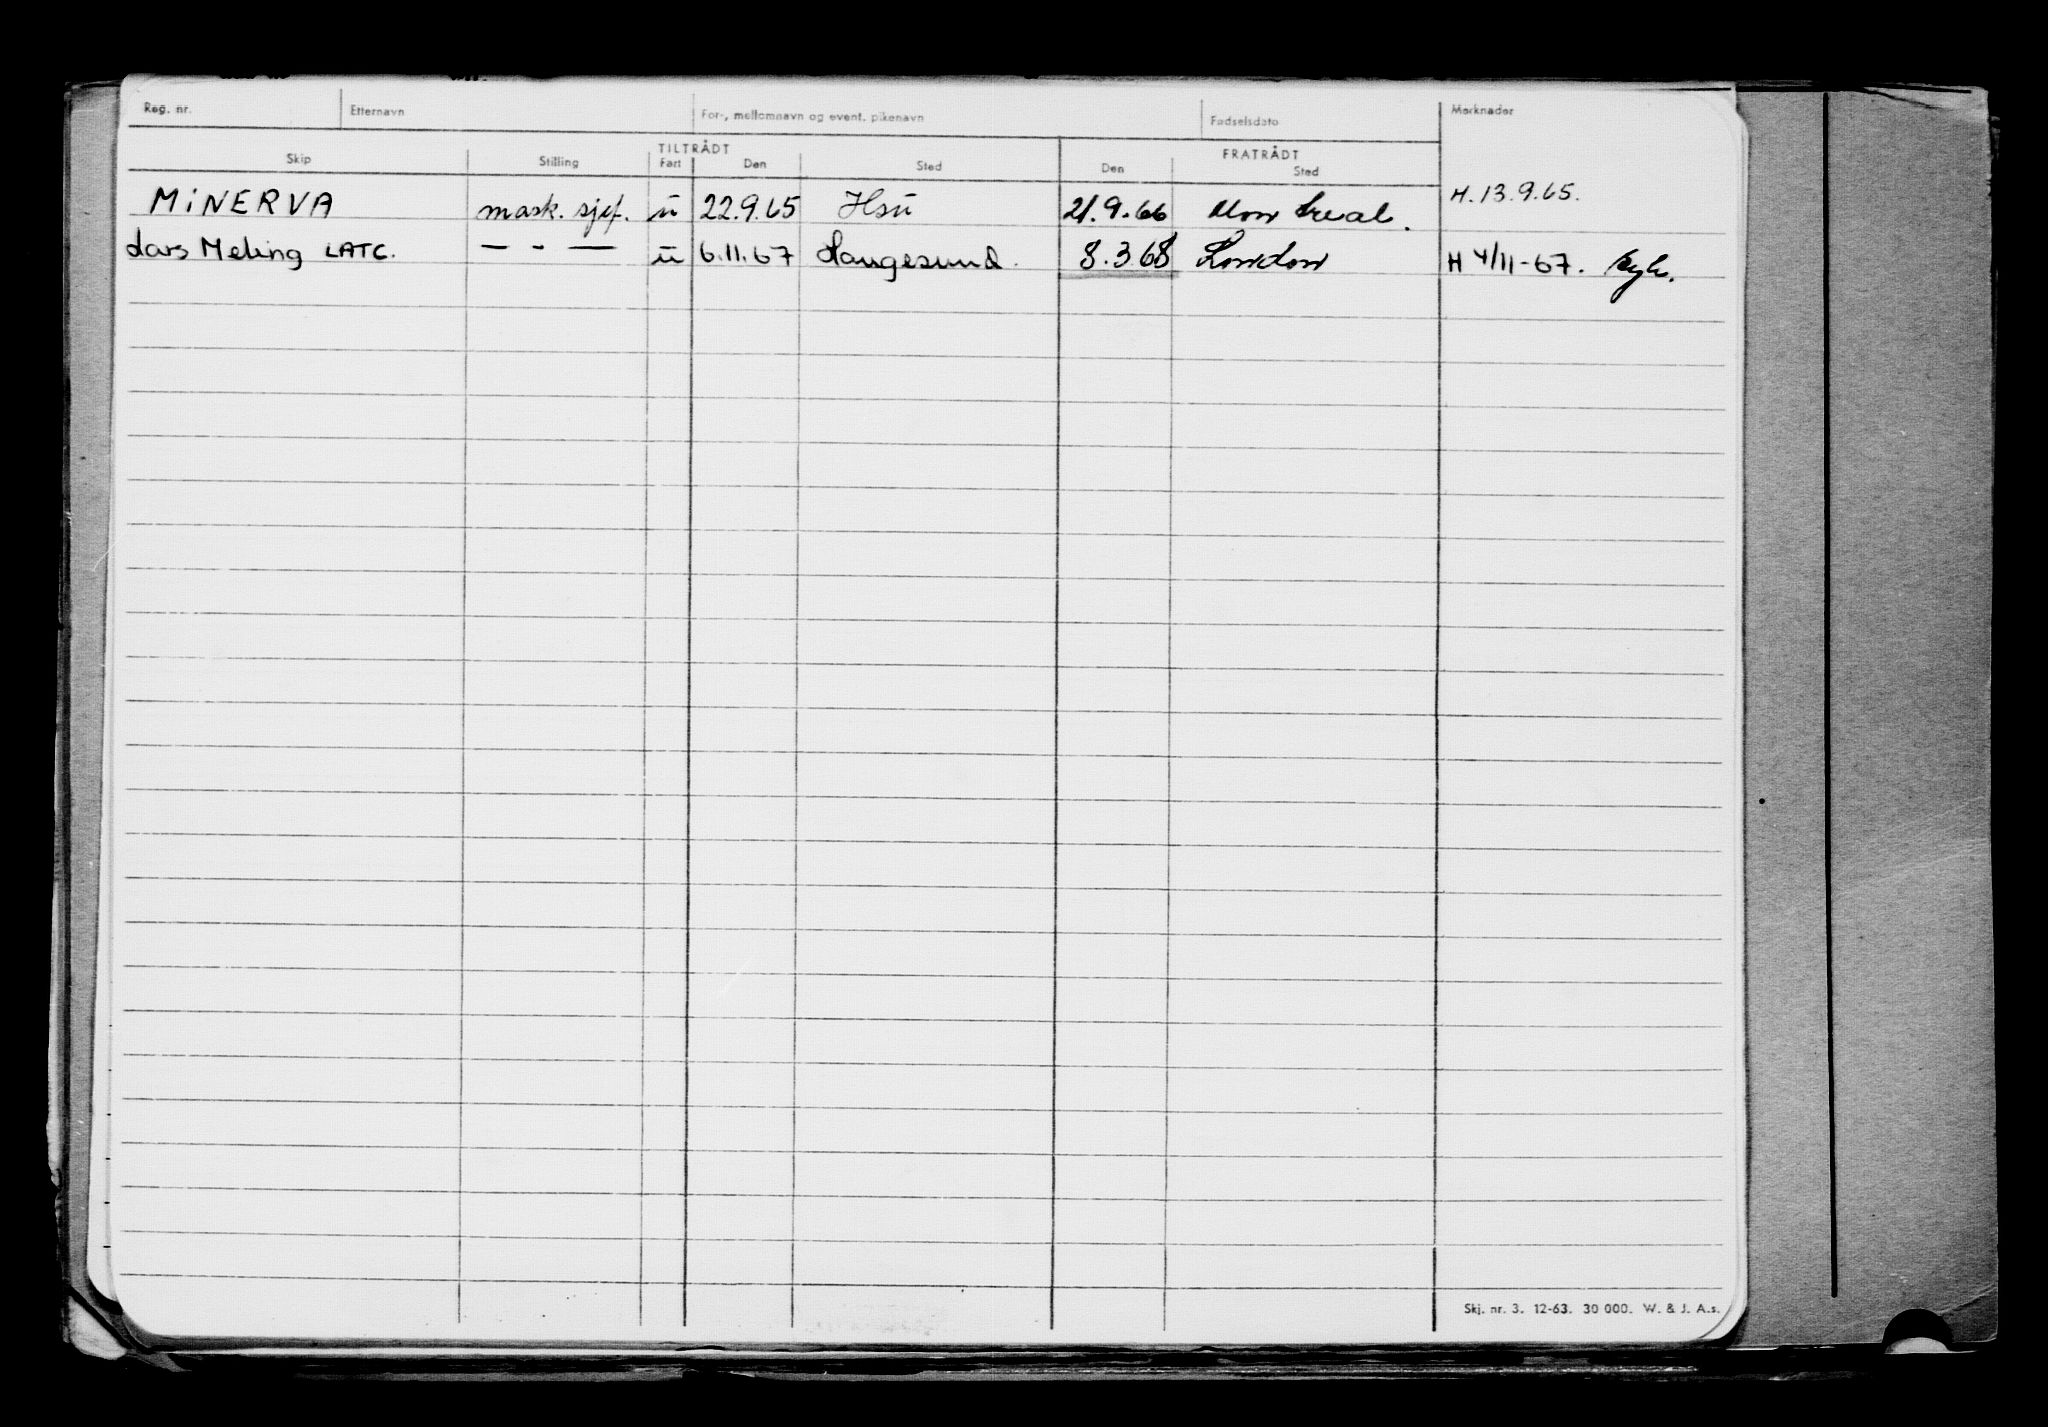 Reg. nr. Etternavn For-, mellomnavn og event. pikenavn Fødselsdato Merknader
TILTRÅDT FRATRÅDT
Skip Stilling Fart Den Sted Den Sted
MiNERVA mask. sjef. u 22.9.65 Hsu 21.9.66 Montreal. H. 13.9.65.
Lars Meling LATC. — - — u 6.11.67 Haugesund. 8.3.68 London H 4/11-67.
Skj. nr. 3. 12-63. 30 000. W. & J. A.s.